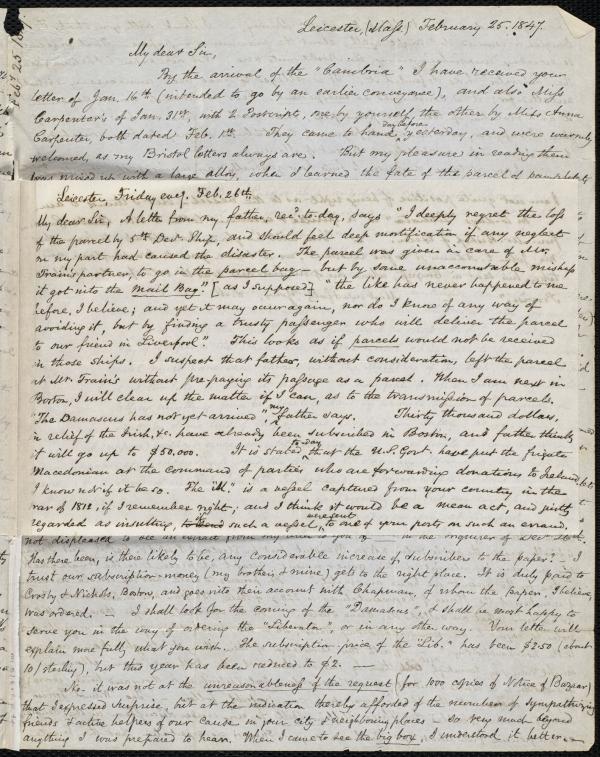 Leicester, (Mass.) February 25. 1847.
My dear Sir,
By the arrival of the "Cambria" I have received your
letter of Jan. 16th (intended to go by an earlier conveyance), and also Miss
Carpenter's of Jan. 31st, with 2 Postscripts, one by yourself, the other by Miss Anna
Carpenter, both dated Feb. 1st. They came to hand day before yesterday, and were warmly
welcomed, as my Bristol letters always are. But my pleasure in reading them
was mixed up with a large alloy, when I learned the fate of the parcel of pamphlets
Feb 25 18
Leicester, Friday eveg. Feb. 26th.
My dear Sir, A letter from my father, recd. to-day, says "I deeply regret the loss
of the parcel by 5th Dec. Ship, and should feel deep mortification if any neglect
on my part had caused the disaster. The parcel was given in care of Mr.
Train's partner, to go in the parcel bag – but by some unaccountable mishap
it got into the Mail Bag". [as I supposed] "the like has never happened to me
before, I believe; and yet it may occur again, nor do I know of any way of
avoiding it, but by finding a trusty passenger who will deliver the parcel
to our friend in Liverpool". This looks as if parcels would not be received
in those ships. I suspect that father, without consideration, left the parcel
at Mr. Train's without pre-paying its passage as a parcel. When I am next in
Boston, I will clear up the matter if I can, as to the transmission of parcels.
"The Damascus has not yet arrived" my father says. Thirty thousand dollars,
in relief of the Irish, &c. have already been subscribed in Boston, and father thinks
it will go up to $50.000. It is stated to-day that the U.S. Govt. have put the frigate
Macedonian at the command of parties who are forwarding donations to Ireland.
I know not if it be so. The "M." is a vessel captured from your country in the
war of 1812, if I remember right; and I think it would be a mean act, and justly
regarded as insulting, to send such a vessel were sent to one of your ports on such an errand.
not displeased to see an extract from my letter to you in the Inquirer of
Has there been, is there likely to be, any considerable increase of subscribers to the paper? – I
trust our subscription-money (my brother's & mine) gets to the right place. It is duly paid to
Crosby & Nichols, Boston, and goes into their account with Chapman, of whom the paper, I believe,
was ordered. – I shall look for the coming of the "Damascus", & shall be most happy to
serve you in the way of ordering the "Liberator", or in any other way. Your letter will
explain more fully what you wish. The subscription-price of the "Lib." has been $2.50 (about
10/ sterling), but this year has been reduced to $2. —
No – it was not at the unreasonableness of the request (for 1000 copies of Notice of Bazaar)
that I expressed surprise, but at the indication thereby afforded of the number of sympathizing
friends & active helpers of our cause in your city & neighbouring places – so very much beyond
anything I was prepared to hear. When I came to see the big box, I understood it better. –